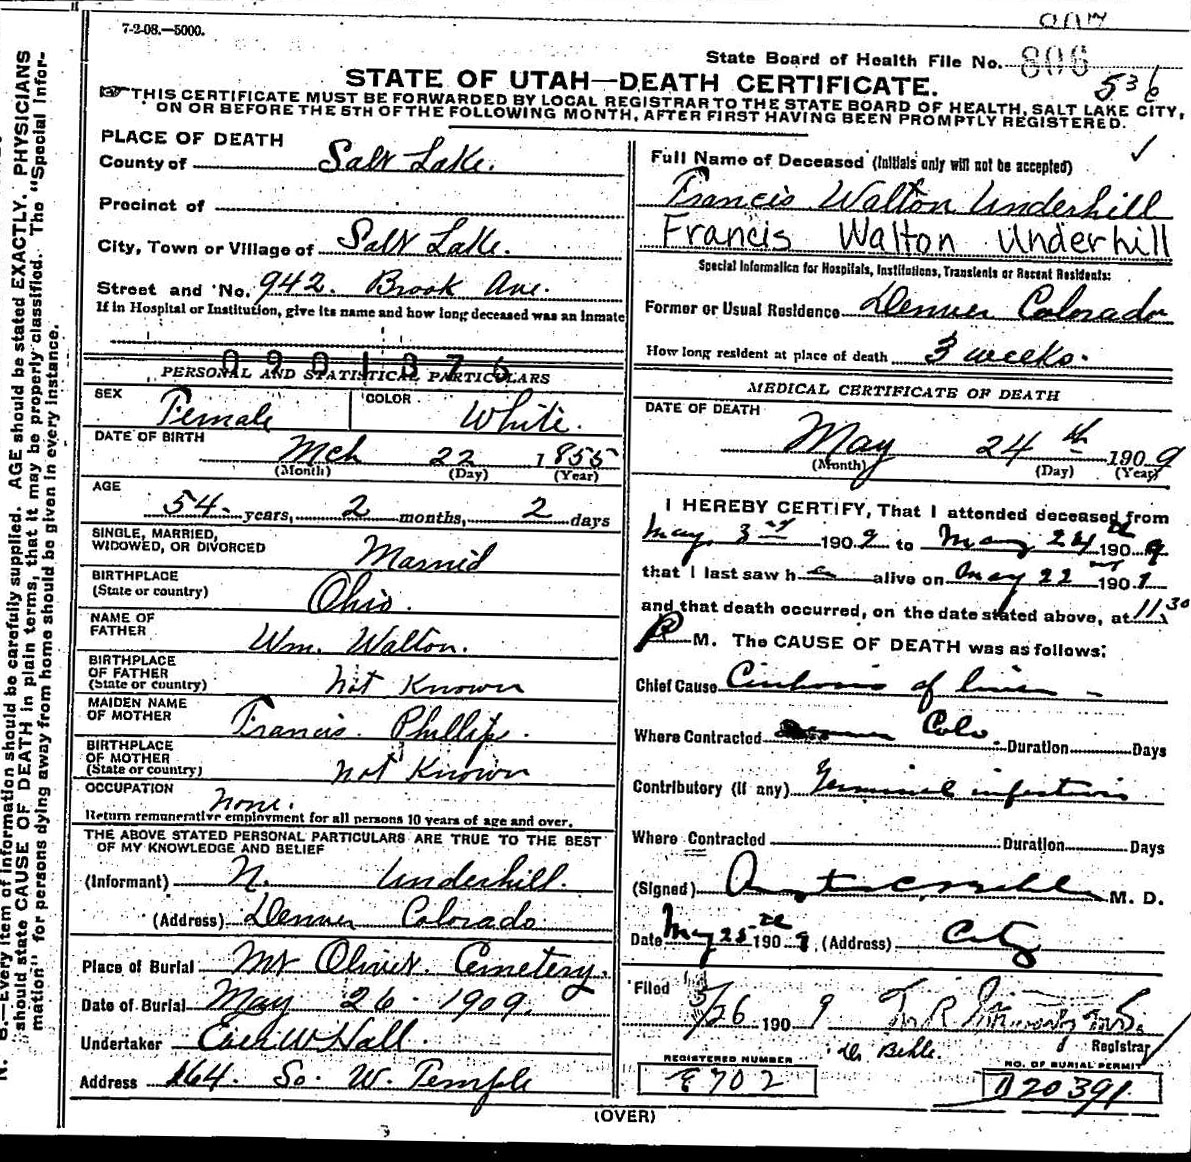 7-2-08.—5000.
State Board of Health File No. 806
536
STATE OF UTAH—DEATH CERTIFICATE.
THIS CERTIFICATE MUST BE FORWARDED BY LOCAL REGISTRAR TO THE STATE BOARD OF HEALTH, SALT LAKE CITY,
ON OR BEFORE THE 5TH OF THE FOLLOWING MONTH, AFTER FIRST HAVING BEEN PROMPTLY REGISTERED.
N. B.—Every item of information should be carefully supplied. AGE should be stated EXACTLY. PHYSICIANS
should state CAUSE OF DEATH in plain terms, that it may be properly classified. The "Special Infor-
mation" for persons dying away from home should be given in every instance.
PLACE OF DEATH
County of Salt Lake.
Precinct of
City, Town or Village of Salt Lake.
Street and No. 942. Brook Ave.
If in Hospital or Institution, give its name and how long deceased was an Inmate
0901376
PERSONAL AND STATISTICAL PARTICULARS
SEX Female COLOR White.
DATE OF BIRTH
Mch 22 1855
(Month) (Day) (Year)
AGE
54 years, 2 months, 2 days
SINGLE, MARRIED,
WIDOWED, OR DIVORCED Married
BIRTHPLACE
(State or country) Ohio.
NAME OF
FATHER Wm. Walton.
BIRTHPLACE
OF FATHER
(State or country) Not Known
MAIDEN NAME
OF MOTHER Francis Phillips.
BIRTHPLACE
OF MOTHER
(State or country) Not Known
OCCUPATION None.
Return remunerative employment for all persons 10 years of age and over.
THE ABOVE STATED PERSONAL PARTICULARS ARE TRUE TO THE BEST
OF MY KNOWLEDGE AND BELIEF
(Informant) N. Underhill.
(Address) Denver Colorado
Place of Burial Mt Olivet. Cemetery.
Date of Burial May 26 - 1909.
Undertaker Eber W Hall.
Address 164. So. W. Temple
Full Name of Deceased (Initials only will not be accepted)
Francis Walton Underhill
Francis Walton Underhill
Special Information for Hospitals, Institutions, Transients or Recent Residents:
Former or Usual Residence Denver Colorado
How long resident at place of death 3 weeks.
MEDICAL CERTIFICATE OF DEATH
DATE OF DEATH
May 24th 1909
(Month) (Day) (Year)
I HEREBY CERTIFY, That I attended deceased from
May 3rd 1909 to May 24th 1909
that I last saw her alive on May 22nd 1909
and that death occurred, on the date stated above, at 11.30
P M. The CAUSE OF DEATH was as follows:
Chief Cause Cirrhosis of liver
Where Contracted Colo. Duration Days
Contributory (if any) Terminal infections
Where Contracted Duration Days
(Signed) M. D.
Date May 25th 1909, (Address) City
Filed 5/26 1909
Registrar
Dr Behle.
REGISTERED NUMBER
E702
NO. OF BURIAL PERMIT
D 20391
(OVER)